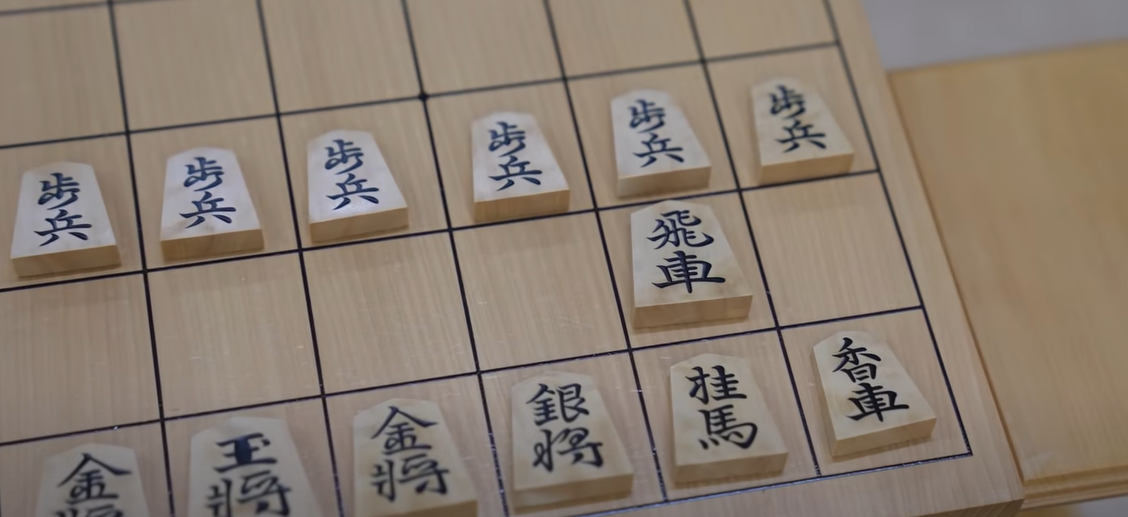 歩兵
歩兵
歩兵
歩兵
歩兵
歩兵
飛車
金将
玉将
金将
銀将
桂馬
香車